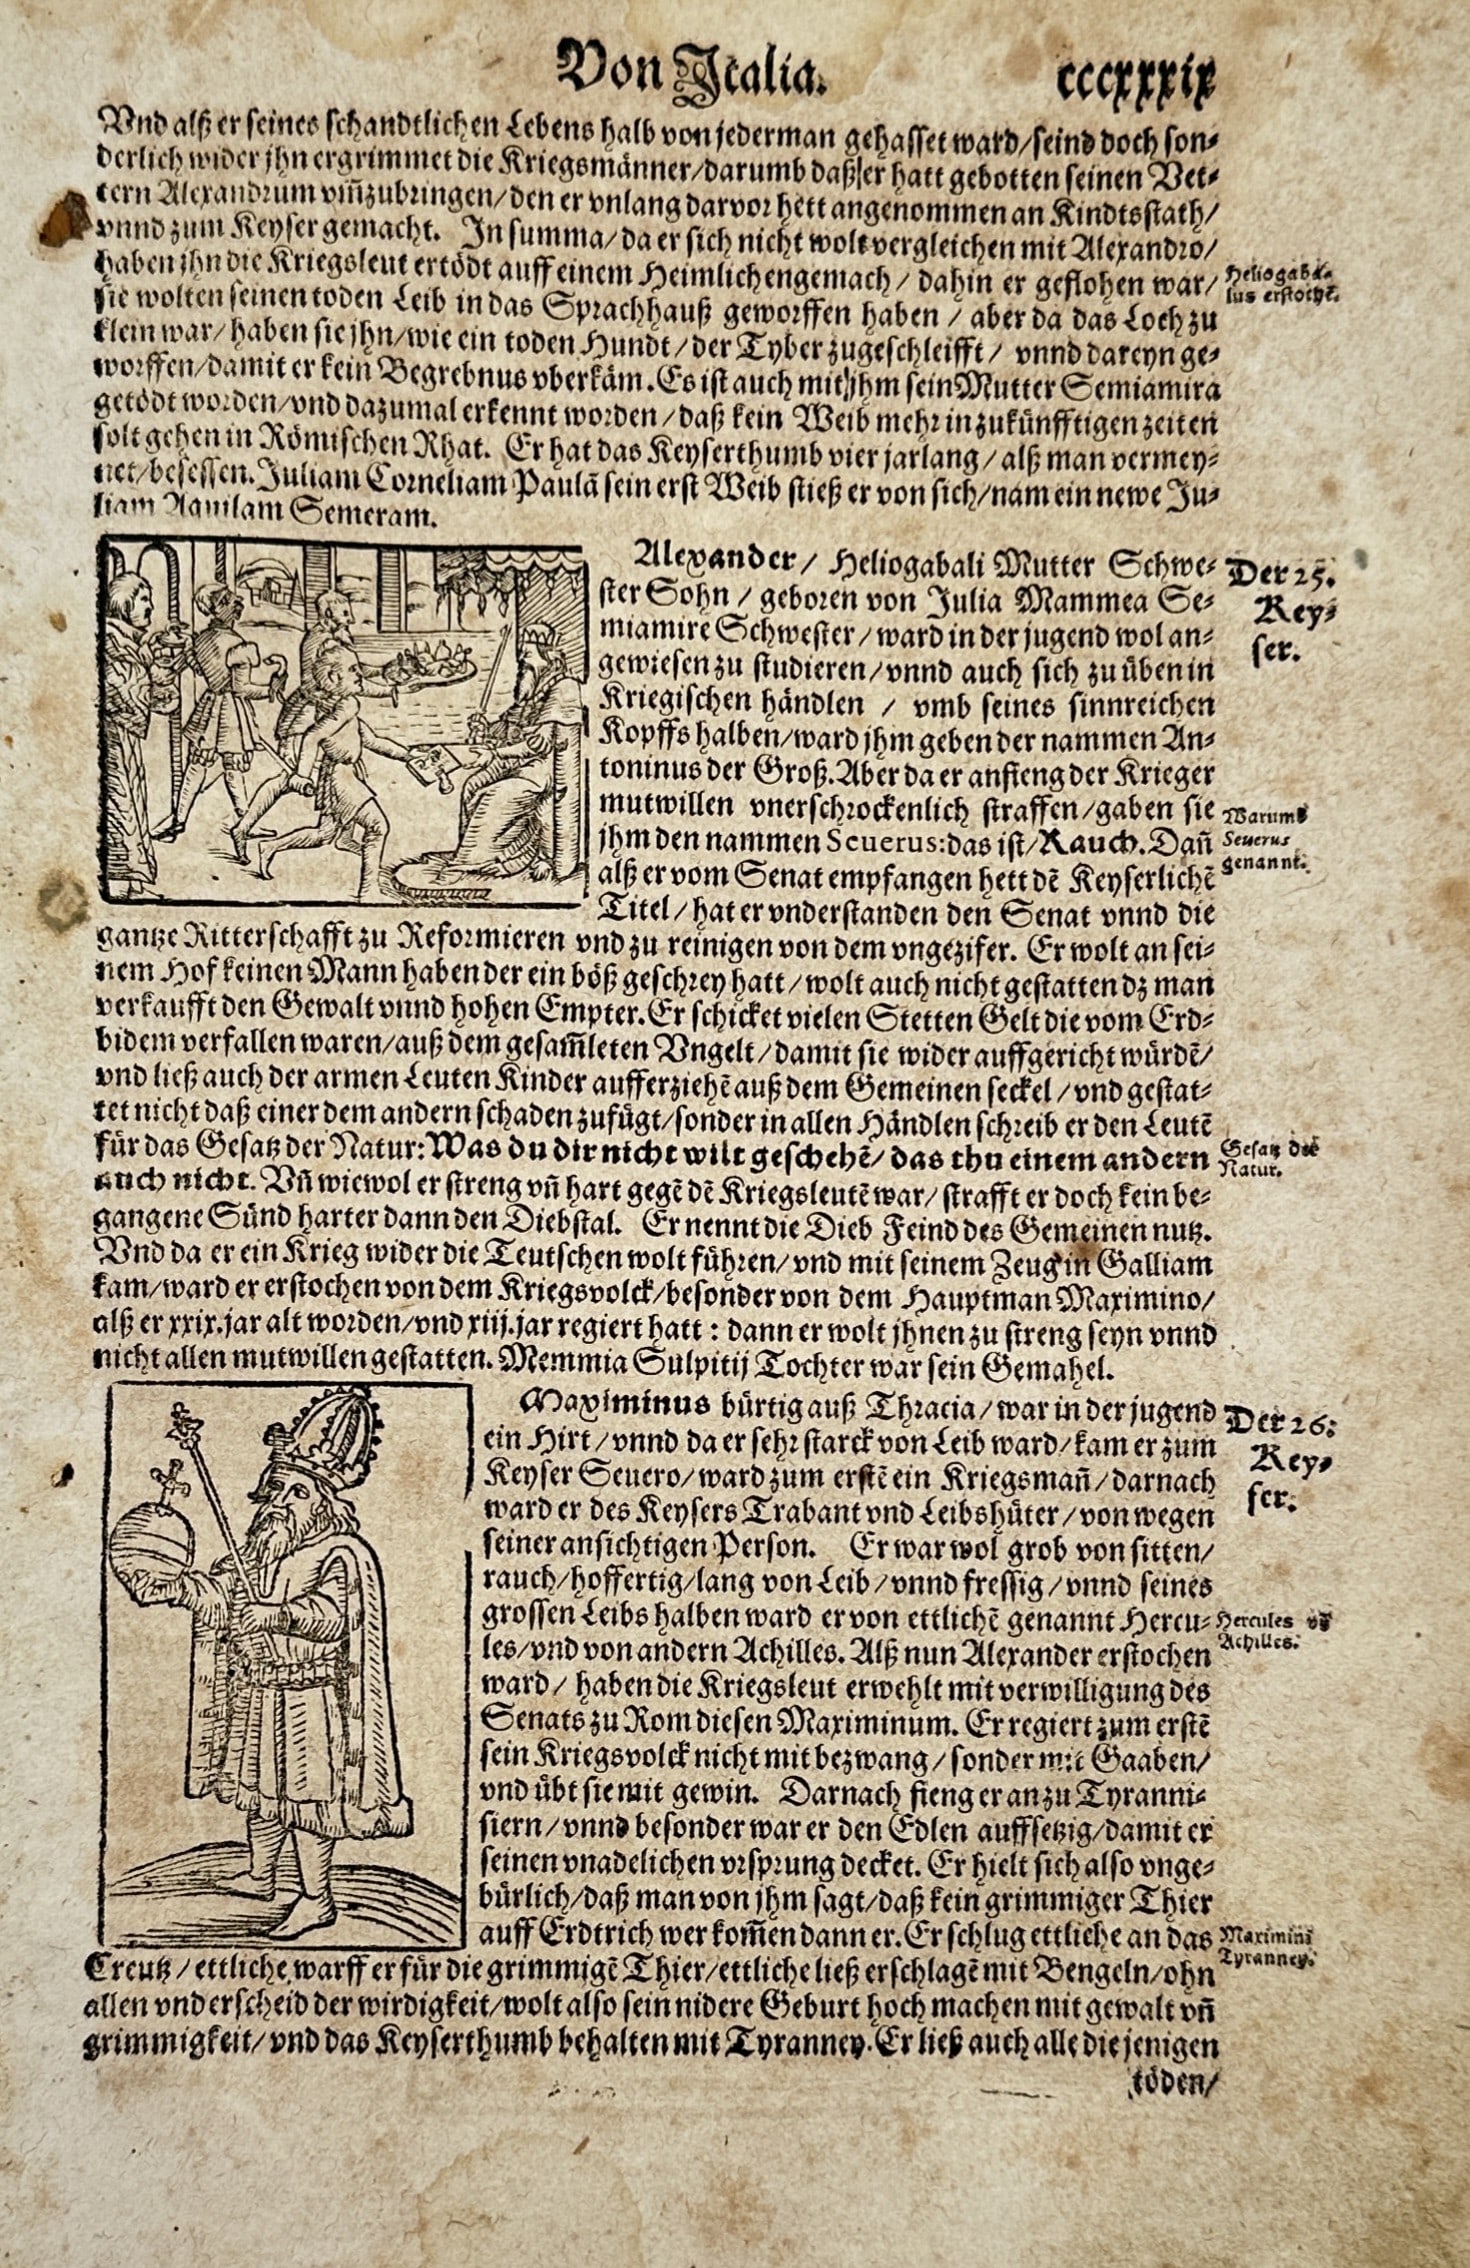 Von Italia.
cccxxxix
Vnd alß er seines schandtlichen Lebens halb von jederman gehasset ward/seind doch son⸗
derlich wider jhn ergrimmet die Kriegsmänner/darumb daß er hatt gebotten seinen Vet⸗
tern Alexandrum vm̃zubringen/den er vnlang darvor hett angenommen an Kindtsstath/
vnnd zum Keyser gemacht. In summa/da er sich nicht wolt vergleichen mit Alexandro/
haben jhn die Kriegsleut ertödt auff einem Heimlichengemach/ dahin er geflohen war/
Heliogaba⸗
lus erstochẽ.
sie wolten seinen toden Leib in das Sprachhauß geworffen haben / aber da das Loch zu
klein war/ haben sie jhn/wie ein toden Hundt/der Tyber zugeschleifft/ vnnd dareyn ge⸗
worffen/damit er kein Begrebnus vberkäm. Es ist auch mit jhm sein Mutter Semiamira
getödt worden/vnd dazumal erkennt worden/ daß kein Weib mehr in zukünfftigen zeiten
solt gehen in Römischen Rhat. Er hat das Keyserthumb vier jarlang/ alß man vermey⸗
net/besessen. Juliam Corneliam Paulã sein erst Weib stieß er von sich/nam ein newe Ju⸗
liam Aquilam Semeram.
Alexander/ Heliogabali Mutter Schwe⸗
Der 25.
Key⸗
ser.
ster Sohn / geboren von Julia Mammea Se⸗
miamire Schwester/ward in der jugend wol an⸗
gewiesen zu studieren/vnnd auch sich zu üben in
Kriegischen händlen / vmb seines sinnreichen
Kopffs halben/ward jhm geben der nammen An⸗
toninus der Groß. Aber da er anfieng der Krieger
mutwillen vnerschrockenlich straffen/gaben sie
Warumb
Seuerus
genannt.
jhm den nammen Seuerus:das ist/Rauch. Dañ
alß er vom Senat empfangen hett dẽ Keyserlichẽ
Titel/hat er vnderstanden den Senat vnnd die
gantze Ritterschafft zu Reformieren vnd zu reinigen von dem vngezifer. Er wolt an sei⸗
nem Hof keinen Mann haben der ein böß geschrey hatt/wolt auch nicht gestatten dz man
verkaufft den Gewalt vnnd hohen Empter. Er schicket vielen Stetten Gelt die vom Erd⸗
bidem verfallen waren/auß dem gesam̃leten Vngelt/damit sie wider auffgericht würdẽ/
vnd ließ auch der armen Leuten Kinder aufferziehẽ auß dem Gemeinen seckel/vnd gestat⸗
tet nicht daß einer dem andern schaden zufügt/sonder in allen Händlen schreib er den Leutẽ
für das Gesatz der Natur: Was du dir nicht wilt geschehẽ/das thu einem andern
Gesatz der
Natur.
auch nicht. Vñ wiewol er streng vñ hart gegẽ dẽ Kriegsleutẽ war/ strafft er doch kein be⸗
gangene Sünd harter dann den Diebstal. Er nennt die Dieb Feind des Gemeinen nutz.
Vnd da er ein Krieg wider die Teutschen wolt führen/vnd mit seinem Zeug in Galliam
kam/ward er erstochen von dem Kriegsvolck/besonder von dem Hauptman Maximino/
alß er xxix.jar alt worden/vnd xiij.jar regiert hatt: dann er wolt jhnen zu streng seyn vnnd
nicht allen mutwillen gestatten. Memmia Sulpitij Tochter war sein Gemahel.
Maximinus bürtig auß Thracia/war in der jugend
Der 26.
Key⸗
ser.
ein Hirt/vnnd da er sehr starck von Leib ward/kam er zum
Keyser Seuero/ward zum erstẽ ein Kriegsmañ/darnach
ward er des Keysers Trabant vnd Leibshüter/von wegen
seiner ansichtigen Person. Er war wol grob von sitten/
rauch/hoffertig/lang von Leib/vnnd fressig/vnnd seines
grossen Leibs halben ward er von ettlichẽ genannt Hercu⸗
Hercules vñ
Achilles.
les/vnd von andern Achilles. Alß nun Alexander erstochen
ward/ haben die Kriegsleut erwehlt mit verwilligung des
Senats zu Rom diesen Maximinum. Er regiert zum erstẽ
sein Kriegsvolck nicht mit bezwang/sonder mit Gaaben/
vnd übt sie mit gewin. Darnach fieng er an zu Tyranni⸗
siern/vnnd besonder war er den Edlen auffsetzig/damit er
seinen vnadelichen vrsprung decket. Er hielt sich also vnge⸗
bürlich/daß man von jhm sagt/daß kein grimmiger Thier
auff Erdtrich wer kom̃en dann er. Er schlug ettliche an das
Maximini
Tyranney.
Creutz/ettliche warff er für die grimmigẽ Thier/ettliche ließ er schlagẽ mit Bengeln/ohn
allen vnderscheid der wirdigkeit/wolt also sein nidere Geburt hoch machen mit gewalt vñ
grimmigkeit/vnd das Keyserthumb behalten mit Tyranney. Er ließ auch alle die jenigen
töden/